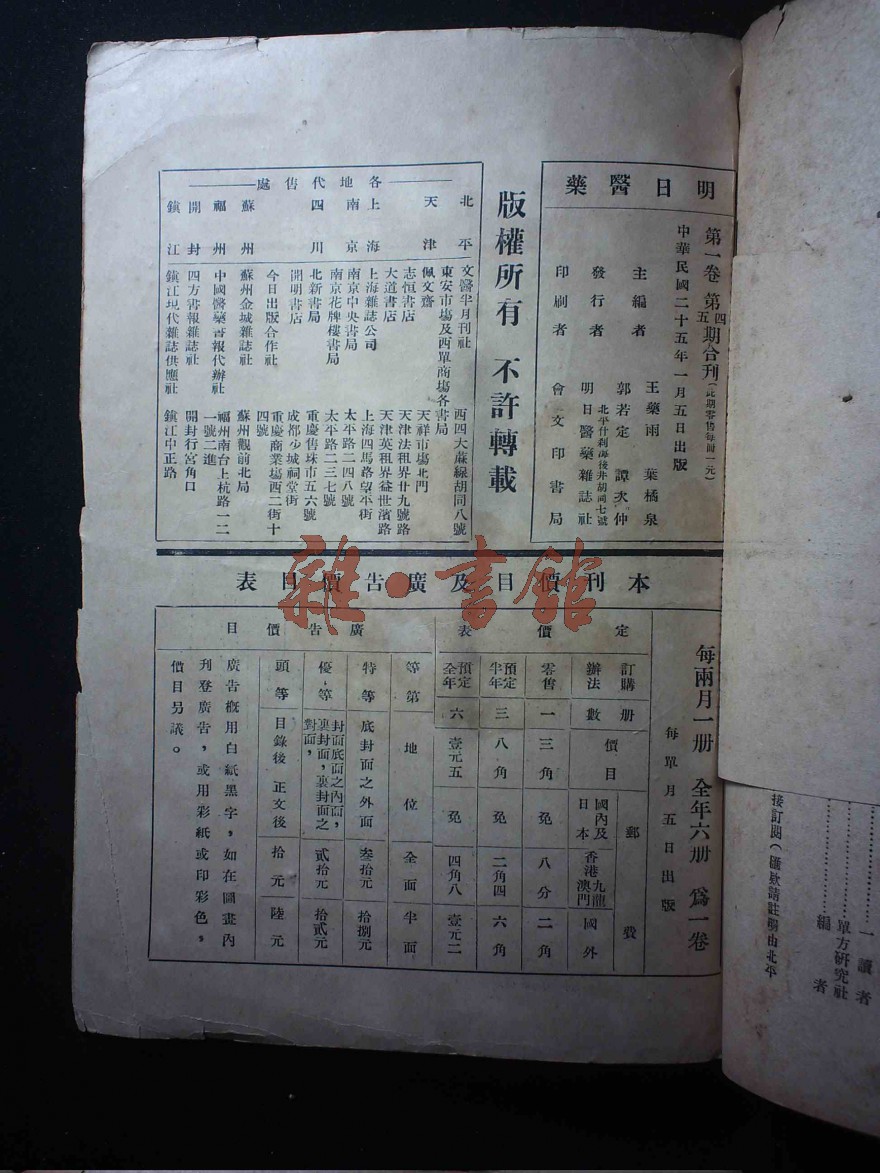 明日醫藥
第一卷 第四五期合刊(此期零售每冊一元)
中華民國二十五年一月五日出版
主編者 王藥雨 葉橘泉
郭若定 譚次仲
發行者 明日醫藥雜誌社
北平什刹海後井胡同七號
印刷者 會文印書局
版權所有 不許轉載
各地代售處
北平 文醫半月刊社 西四大蔴線胡同八號
東安市場及西單商場各書局
天津 佩文齋 天祥市場北門
志恒書店 天津法租界廿九號路
大道書店 天津英租界益世濱路
上海 上海雜誌公司 上海四馬路望平街
南京 南京中央書局 太平路二四八號
南京花牌樓書局 太平路二三七號
四川 北新書局 重慶售珠市五六號
開明書店 成都少城祠堂街
今日出版合作社 重慶商業場西二街十四號
蘇州 蘇州金城雜誌社 蘇州觀前北局
福州 中國醫藥書報代辦社 福州南台上杭路一二一號二進
開封 四方書報雜誌社 開封行宮角口
鎮江 鎮江現代雜誌供應社 鎮江中正路
本刊價目及廣告價目表
每兩月一册 全年六册 爲一卷
每單月五日出版
定價表
訂購辦法 册數 價目 郵費 國內及日本 香港九龍澳門 國外
零售 一 三角 免 八分 二角
預定半年 三 八角 免 二角四 六角
預定全年 六 壹元五 免 四角八 壹元二
廣告價目
等第 地位 全面 半面
特等 底封面之外面 叁拾元 拾捌元
優等 封面底面之內面,裏封面,裏封面之對面, 貳拾元 拾貳元
頭等 目錄後 正文後 拾元 陸元
廣告概用白紙黑字,如在圖畫內
刊登廣告,或用彩紙或印彩色,
價目另議。
雜·書館
一讀者
單方研究社
編者